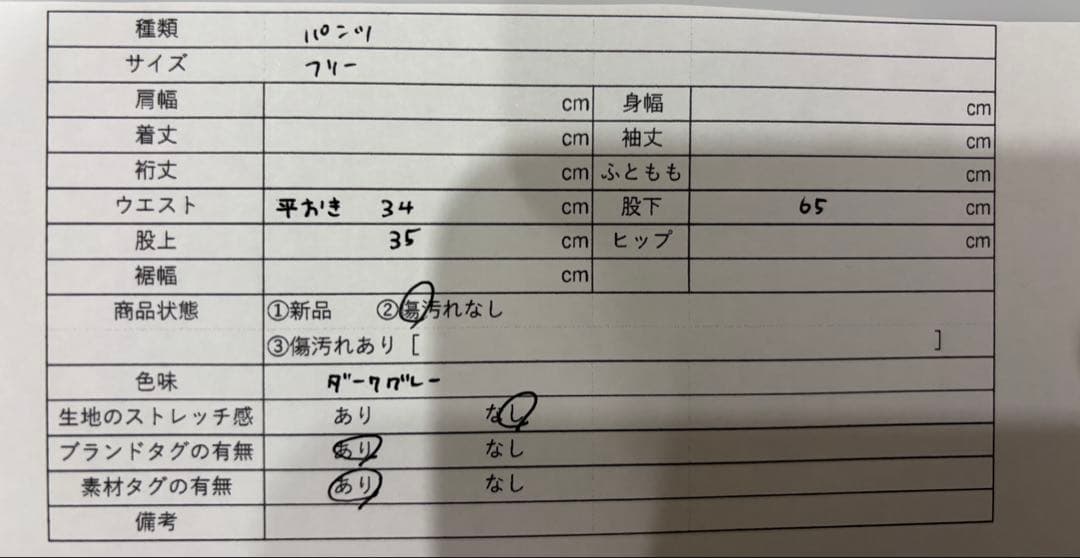 種類 パンツ
サイズ フリー
肩幅 cm 身幅 cm
着丈 cm 袖丈 cm
裄丈 cm ふともも cm
ウエスト 平おき 34 cm 股下 65 cm
股上 35 cm ヒップ cm
裾幅 cm
商品状態 ①新品 ②傷汚れなし
③傷汚れあり [ ]
色味 ダークグレー
生地のストレッチ感 あり なし
ブランドタグの有無 あり なし
素材タグの有無 あり なし
備考